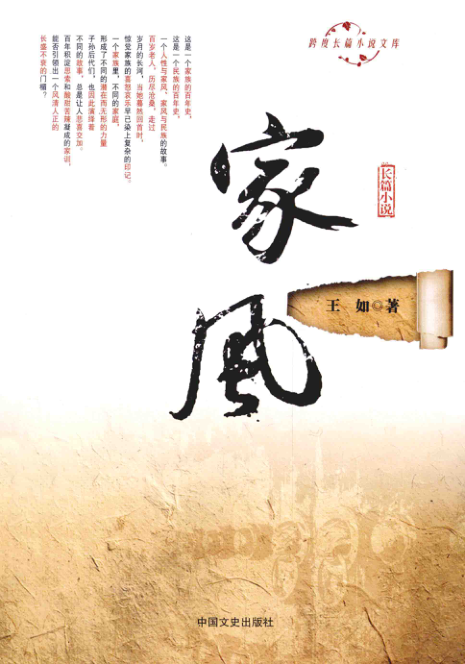 跨度长篇小说文库
这是一个家族的百年史，
这是一个民族的百年史，
一个人性与家风、家风与民族的故事。
百岁老人，历尽沧桑，走过
岁月的长河，当她蓦然回首时，
惊觉家族的喜怒哀乐早已染上复杂的印记。
一个家族里，不同的家庭，
形成了不同的潜在而无形的力量
子孙后代们，也因此演绎着
不同的故事。总是让人悲喜交加。
百年积淀思索和酸甜苦辣凝成的家训，
能否引领出一个风清人正的
长盛不衰的门楣？
家風
长篇小说
王如 著
中国文史出版社